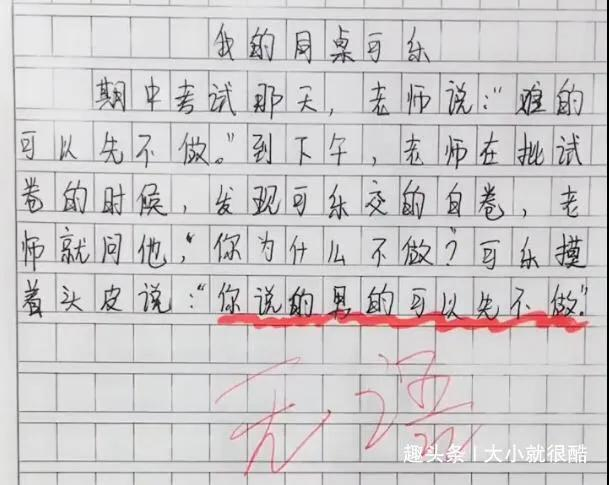 我的同桌可乐
期中考试那天，老师说：“难的
可以先不做。”到下午，老师在批试
卷的时候，发现可乐交的白卷，老
师就问他，“你为什么不做？可乐摸
着头皮说：“你说的男的可以先不做”
无语
趣头条丨大小就很酷